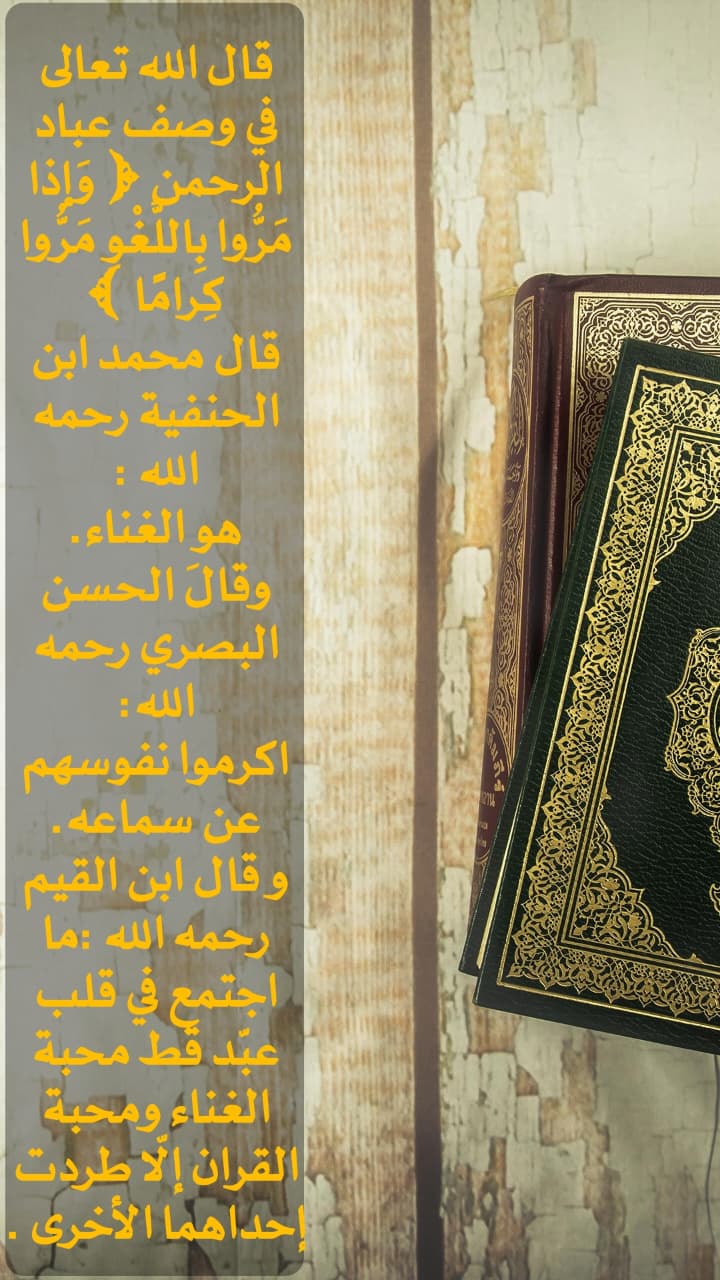 قال الله تعالى
في وصف عباد
الرحمن ﴿ وَإِذا
مَرُّوا بِاللَّغْوِ مَرُّوا
كِرامًا ﴾
قال محمد ابن
الحنفية رحمه
الله :
هو الغناء.
وقالَ الحسن
البصري رحمه
الله :
اكرموا نفوسهم
عن سماعه.
وقال ابن القيم
رحمه الله :ما
اجتمع في قلب
عبّد قط محبة
الغناء ومحبة
القران إلّا طردت
إحداهما الأخرى .